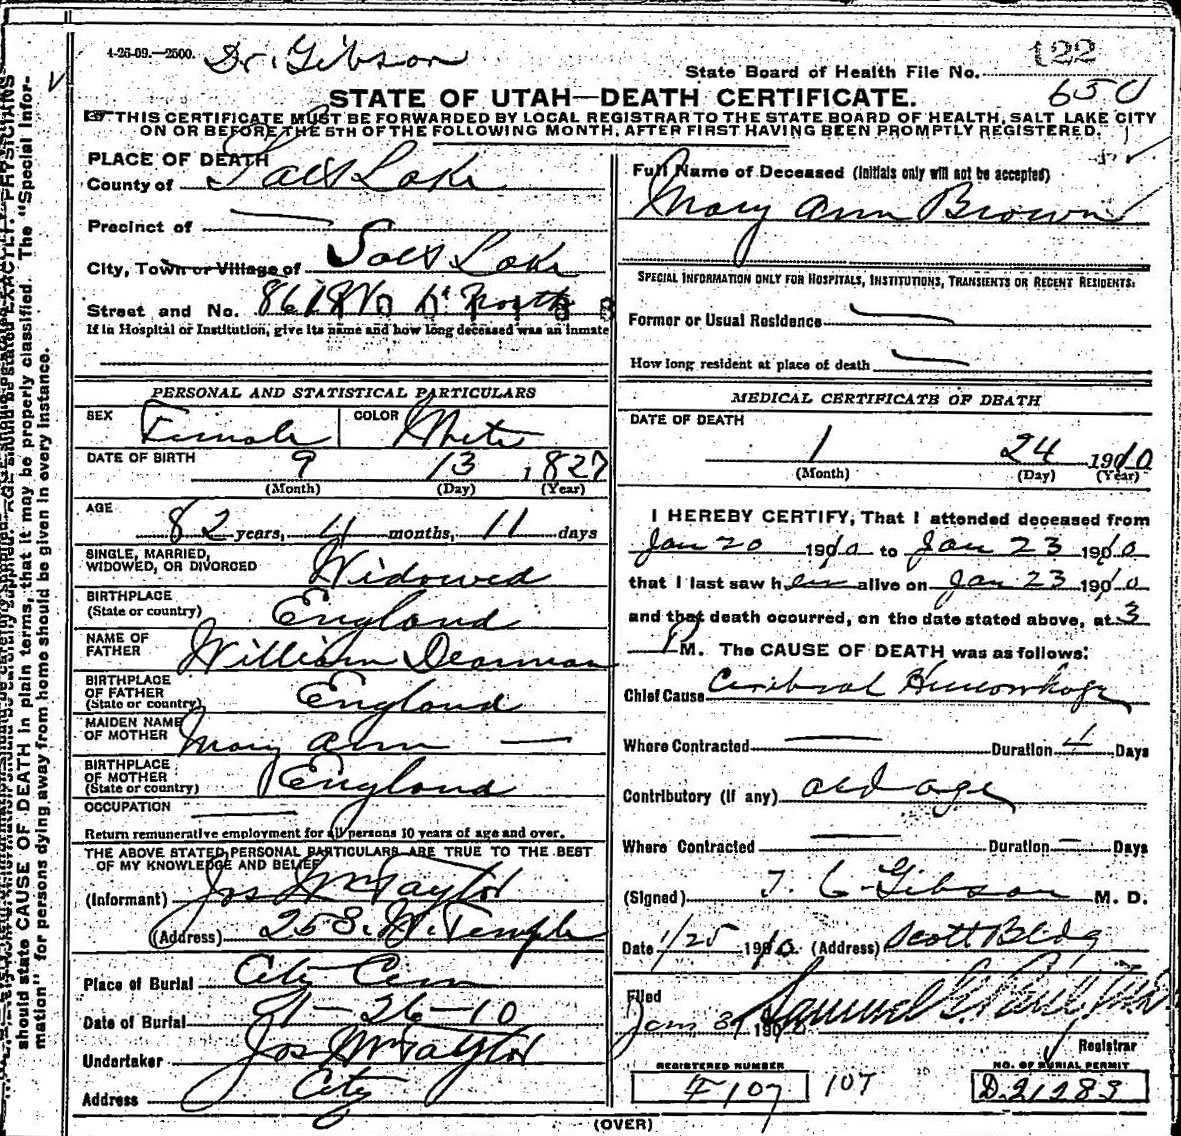 4-26-09.—2500. Dr. Gibson
122
State Board of Health File No. 650
STATE OF UTAH—DEATH CERTIFICATE.
THIS CERTIFICATE MUST BE FORWARDED BY LOCAL REGISTRAR TO THE STATE BOARD OF HEALTH, SALT LAKE CITY
ON OR BEFORE THE 5TH OF THE FOLLOWING MONTH, AFTER FIRST HAVING BEEN PROMPTLY REGISTERED.
PLACE OF DEATH
County of Salt Lake
Precinct of —
City, Town or Village of Salt Lake
Street and No. 861 W North
If in Hospital or Institution, give its name and how long deceased was an inmate
PERSONAL AND STATISTICAL PARTICULARS
SEX Female COLOR White
DATE OF BIRTH 9 13 1827
(Month) (Day) (Year)
AGE
82 years, 4 months, 11 days
SINGLE, MARRIED,
WIDOWED, OR DIVORCED Widowed
BIRTHPLACE
(State or country) England
NAME OF
FATHER William Dearman
BIRTHPLACE
OF FATHER
(State or country) England
MAIDEN NAME
OF MOTHER Mary Ann —
BIRTHPLACE
OF MOTHER
(State or country) England
OCCUPATION —
Return remunerative employment for all persons 10 years of age and over.
THE ABOVE STATED PERSONAL PARTICULARS ARE TRUE TO THE BEST
OF MY KNOWLEDGE AND BELIEF
(Informant) Jos Wm Taylor
(Address) 25 S. W. Temple
Place of Burial City Cem
Date of Burial 1-26-10
Undertaker Jos Wm Taylor
Address City
Full Name of Deceased (Initials only will not be accepted)
Mary Ann Brown
SPECIAL INFORMATION ONLY FOR HOSPITALS, INSTITUTIONS, TRANSIENTS OR RECENT RESIDENTS:
Former or Usual Residence —
How long resident at place of death —
MEDICAL CERTIFICATE OF DEATH
DATE OF DEATH
1 24 1910
(Month) (Day) (Year)
I HEREBY CERTIFY, That I attended deceased from
Jan 20 1910 to Jan 23 1910
that I last saw her alive on Jan 23 1910
and that death occurred, on the date stated above, at 3
P M. The CAUSE OF DEATH was as follows:
Chief Cause Cerebral Hemorrhage
Where Contracted — Duration 4 Days
Contributory (if any) old age
Where Contracted — Duration — Days
(Signed) T. C. Gibson M. D.
Date 1/25 1910 (Address) Scott Bldg
Filed
Jan 190 Samuel G. Paul
Registrar
REGISTERED NUMBER
F 107 107
NO. OF BURIAL PERMIT
D.21283
(OVER)
should state CAUSE OF DEATH in plain terms, that it may be properly classified. The "Special Infor-
mation" for persons dying away from home should be given in every instance.